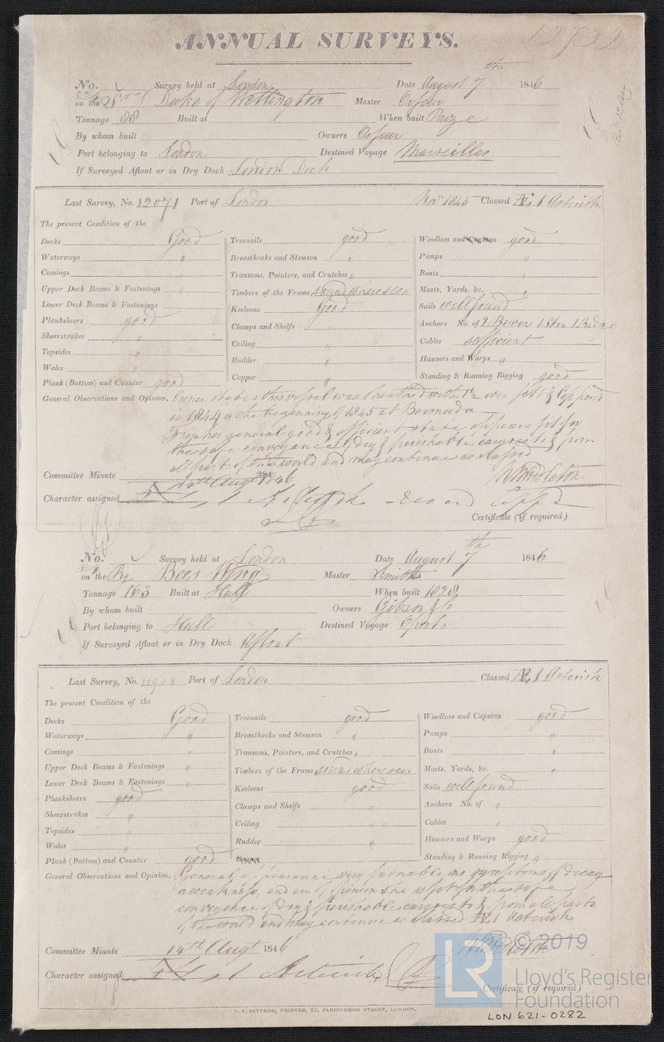 ANNUAL SURVEYS.
No. Survey held at London Date August 7th 1846
on the Duke of Wellington Master
Tannage 88 Built at When built Prize
By whom built Owners
Port belonging to London Destined Voyage Marseilles
If Surveyed Afloat or in Dry Dock London Dock
Last Survey, No. 12071 Port of London 1845 Classed Æ 1 Asterisk
The present Condition of the
Decks Good
Waterways "
Comings "
Upper Deck Beams & Fastenings "
Lower Deck Beams & Fastenings
Planksheers good
Sheerstrakes "
Topsides "
Wales "
Plank (Bottom) and Counter good
Treenails good
Breasthooks and Stemson "
Transoms, Pointers, and Crutches "
Timbers of the Frame sound where seen
Keelsons Good
Clamps and Shelfs "
Ceiling "
Rudder "
Copper "
Windlass and Capstan good
Pumps "
Boats "
Masts, Yards, &c. "
Sails well found
Anchors No. of 2 Bower 1 Stm 1 Kedge
Cables sufficient
Hausers and Warps "
Standing & Running Rigging good
General Observations and Opinion, Owner states this vessel was felt & Coppered
in 1844 or the beginning of 1845 at Bermuda
From her general good & efficient state appears fit for
the safe conveyance of dry & perishable cargoes to & from
all parts of the world and may continue as classed
Committee Minute 14th Augt 1846
Character assigned
Certificate (if required)
No. Survey held at London Date August 7th 1846
on the Br Bees Wing Master Smith
Tannage 163 Built at Hull When built 1828
By whom built Owners Gibson & Co
Port belonging to Hull Destined Voyage Oporto
If Surveyed Afloat or in Dry Dock Afloat
Last Survey, No. 11908 Port of London Classed Æ 1 Asterisk
The present Condition of the
Decks Good
Waterways "
Comings "
Upper Deck Beams & Fastenings "
Lower Deck Beams & Fastenings "
Planksheers good
Sheerstrakes "
Topsides "
Wales "
Plank (Bottom) and Counter good
Treenails good
Breasthooks and Stemson "
Transoms, Pointers, and Crutches "
Timbers of the Frame sound where seen
Keelsons good
Clamps and Shelfs "
Ceiling "
Rudder "
Windlass and Capstan good
Pumps "
Boats "
Masts, Yards, &c. "
Sails well found
Anchors No. of "
Cables "
Hausers and Warps good
Standing & Running Rigging "
General Observations and Opinion, General appearance very favorable, no symptoms of decay
or weakness, and am of opinion she is fit for the safe
conveyance of dry & perishable cargoes to & from all parts
of the world and may continue as classed Æ 1 Asterisk
Committee Minute 14th Augt 1846
Character assigned Asterisk
Certificate (if required)
© 2019
LR Lloyd's Register
Foundation
LON 621-0282